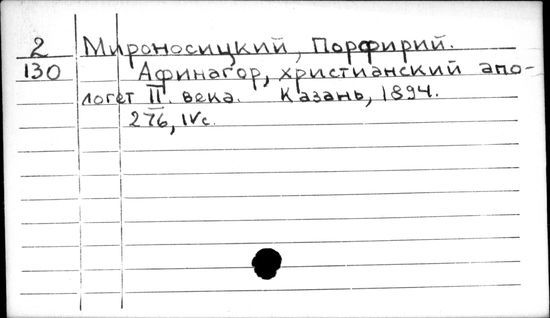 2 Мироносицкий, Порфирий.
130 Афинагор, христианский апо-
логет II. века. Казань, 1894.
276, IV с.